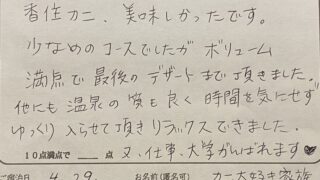 香住カニ、美味しかったです。
少なめのコースでしたが ボリューム
満点で 最後の デザートまで頂きました。
他にも 温泉の 質も良く 時間を気にせず
ゆっくり 入らせて頂き リラックスできました。
10点満点で 点 又、仕事、大学がんばれます♥
ご宿泊日 4 29 お名前(匿名可) カニ大好き家族